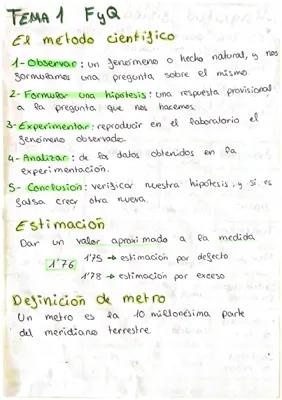 TEMA 1 FyQ
El método científico
1- Observar: un fenómeno o hecho natural, y nos
formulamos una pregunta sobre el mismo.
2- Formular una hipótesis: una respuesta provisional
a la pregunta que nos hacemos
3- Experimentar: reproducir en el laboratorio el
fenómeno observado.
4- Analizar: de los datos obtenidos en la
experimentación.
5- Conclusión: verificar nuestra hipótesis, y si es
falsa crear otra nueva.
Estimación
Dar un valor aproximado a la medida
1'76 1'75 → estimación por defecto
1'78 → estimación por exceso
Definición de metro
Un metro es la 10 millonésima parte
del meridiano terrestre